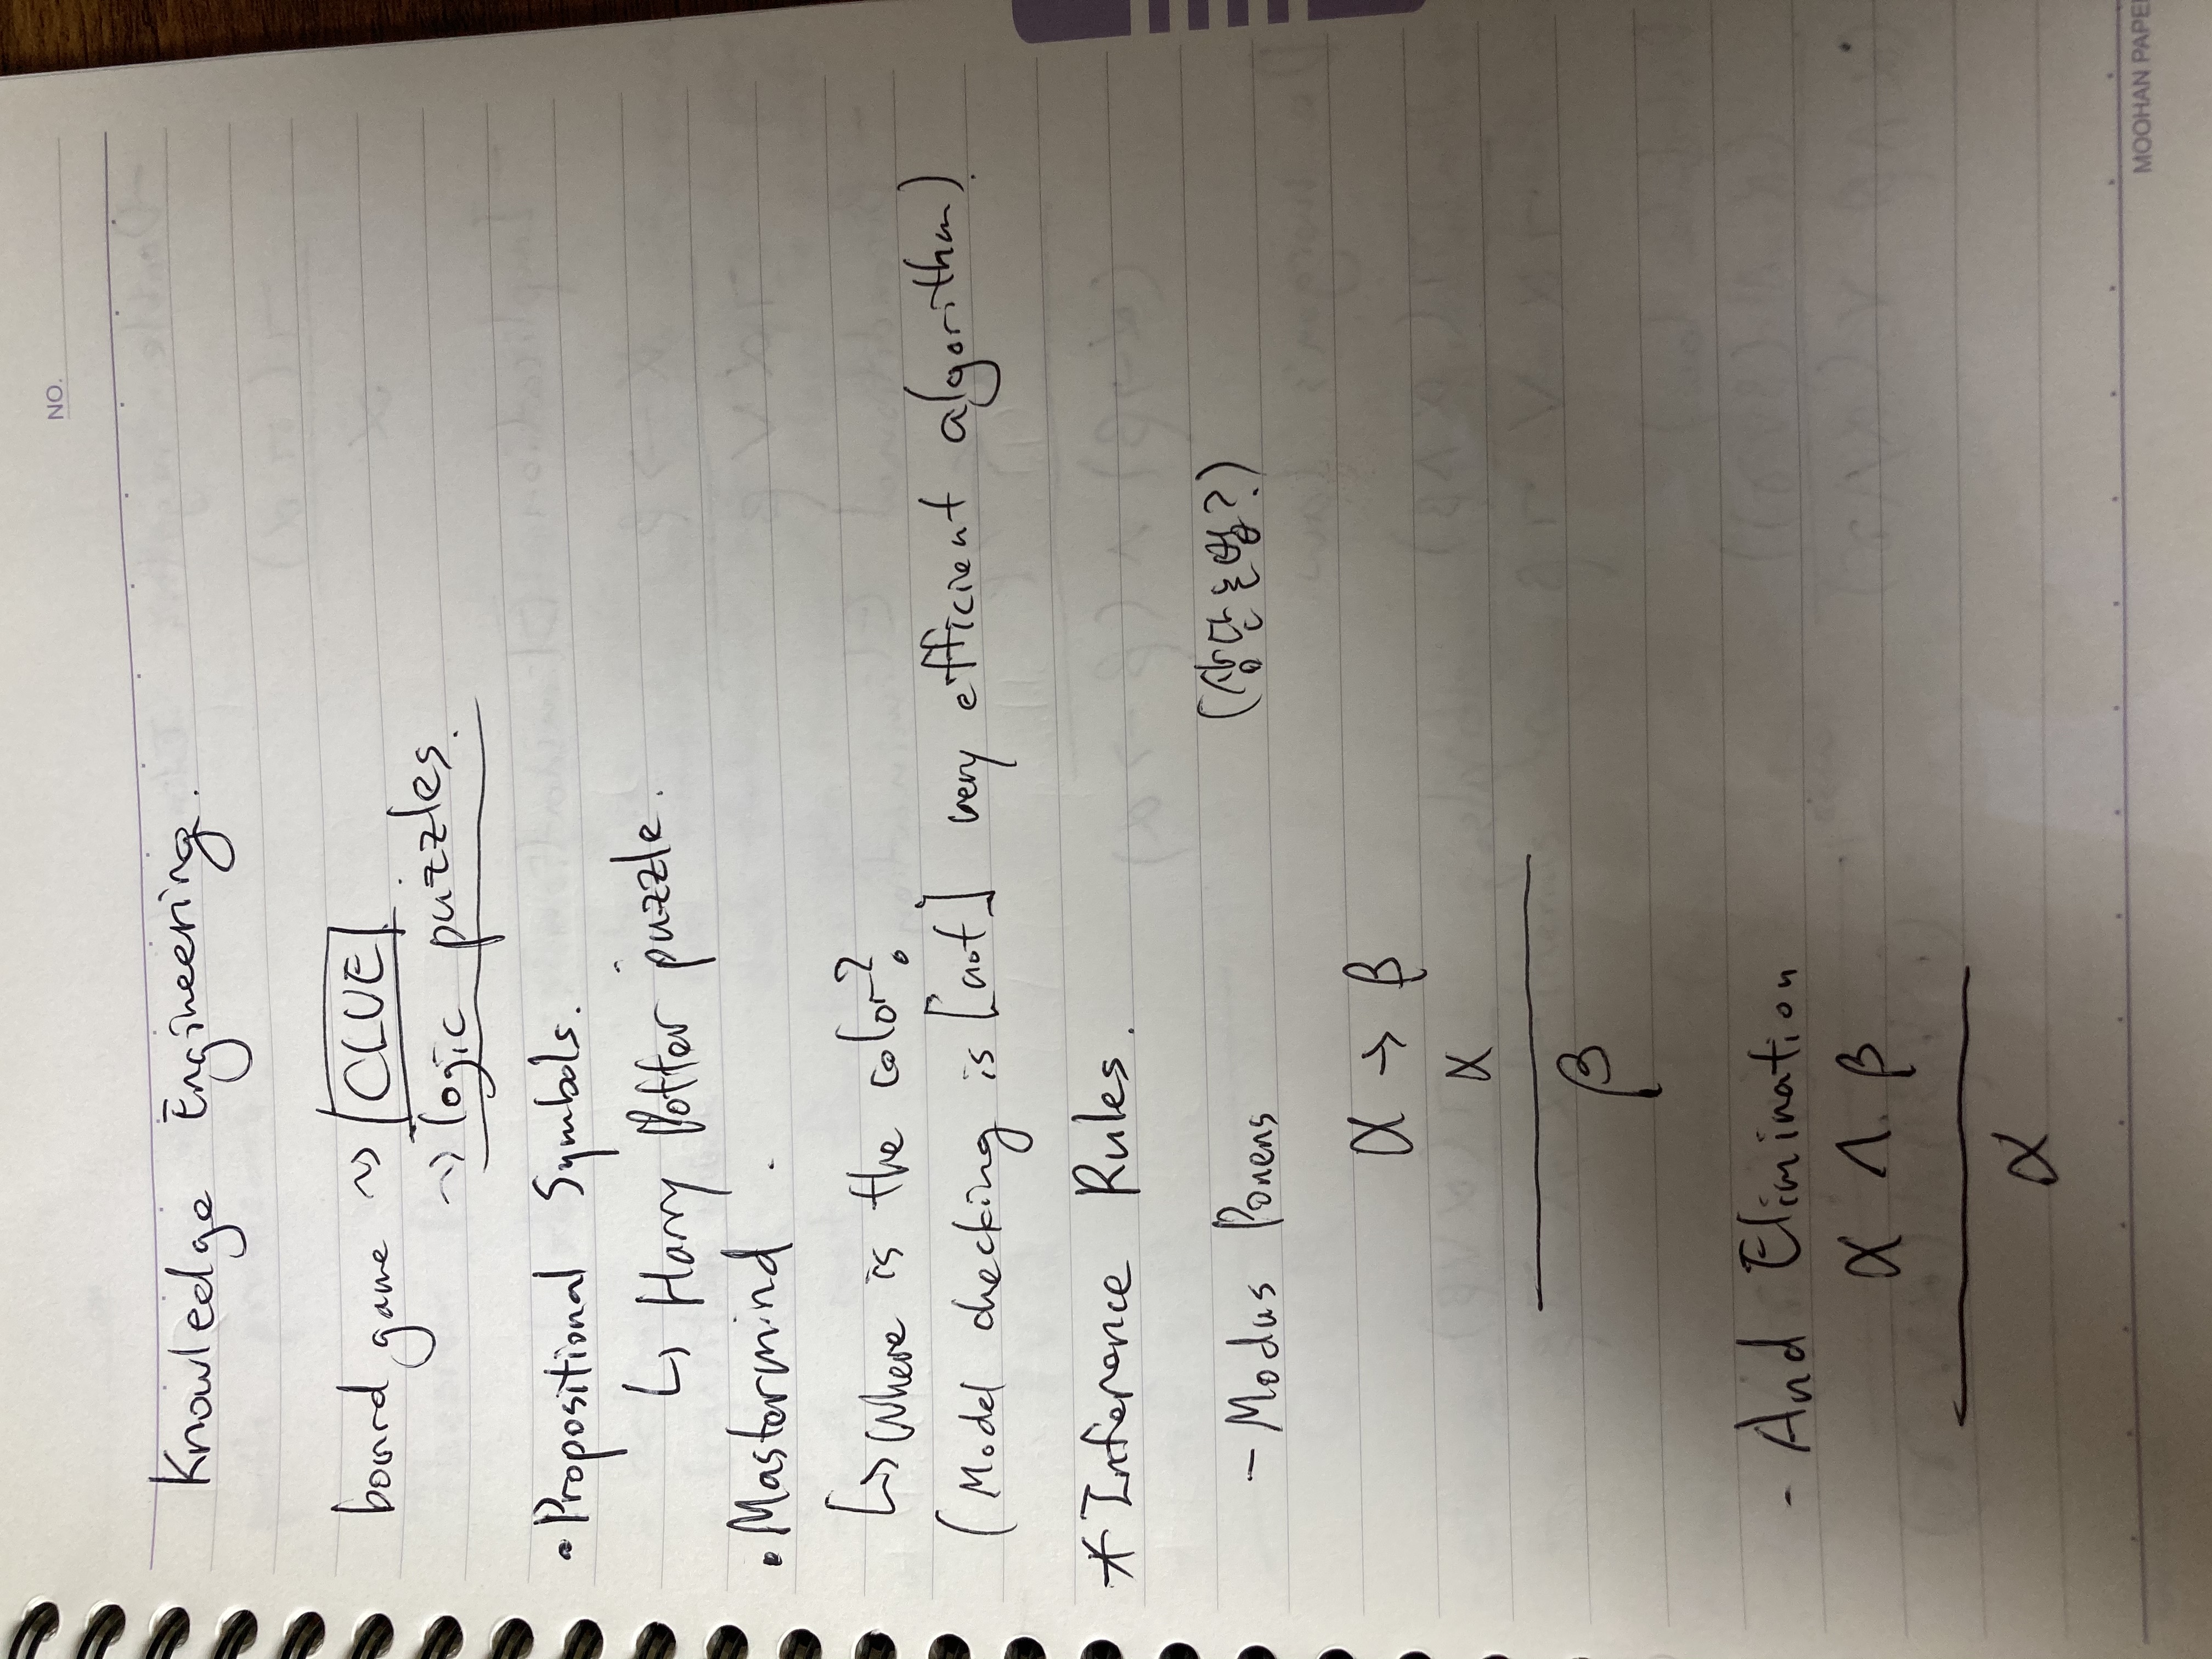 NO.
Knowledge Engineering.
board game ~> CLUE
~> logic puzzles.
• Propositional Symbols.
↳ Harry Potter puzzle.
• Mastermind
↳ Where is the color?
(Model checking is [not] very efficient algorithm)
* Inference Rules.
- Modus Ponens (삼단논법?)
α → β
α
β
- And Elimination
α ∧ β
α
MOOHAN PAPE